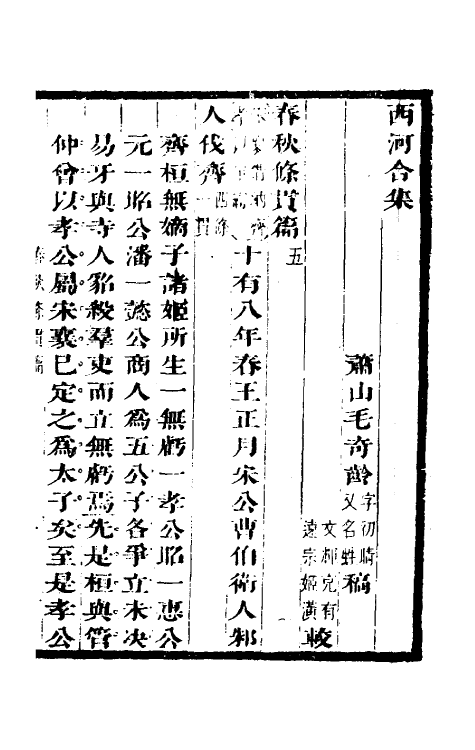 西河合集
蕭山毛奇齡字初晴又名甡稿
文輝充有
遠宗姬潢較
春秋條貫篇五
十有八年春王正月宋公曹伯衛人邾
人伐齊西條一貫
齊桓無嫡子諸姬所生一無虧一孝公昭一惠公
元一昭公潘一懿公商人爲五公子各爭立未决
易牙與寺人貂殺羣吏而立無虧焉先是桓與管
仲曾以孝公屬宋襄已定之爲太子矣至是孝公
春秋條貫篇